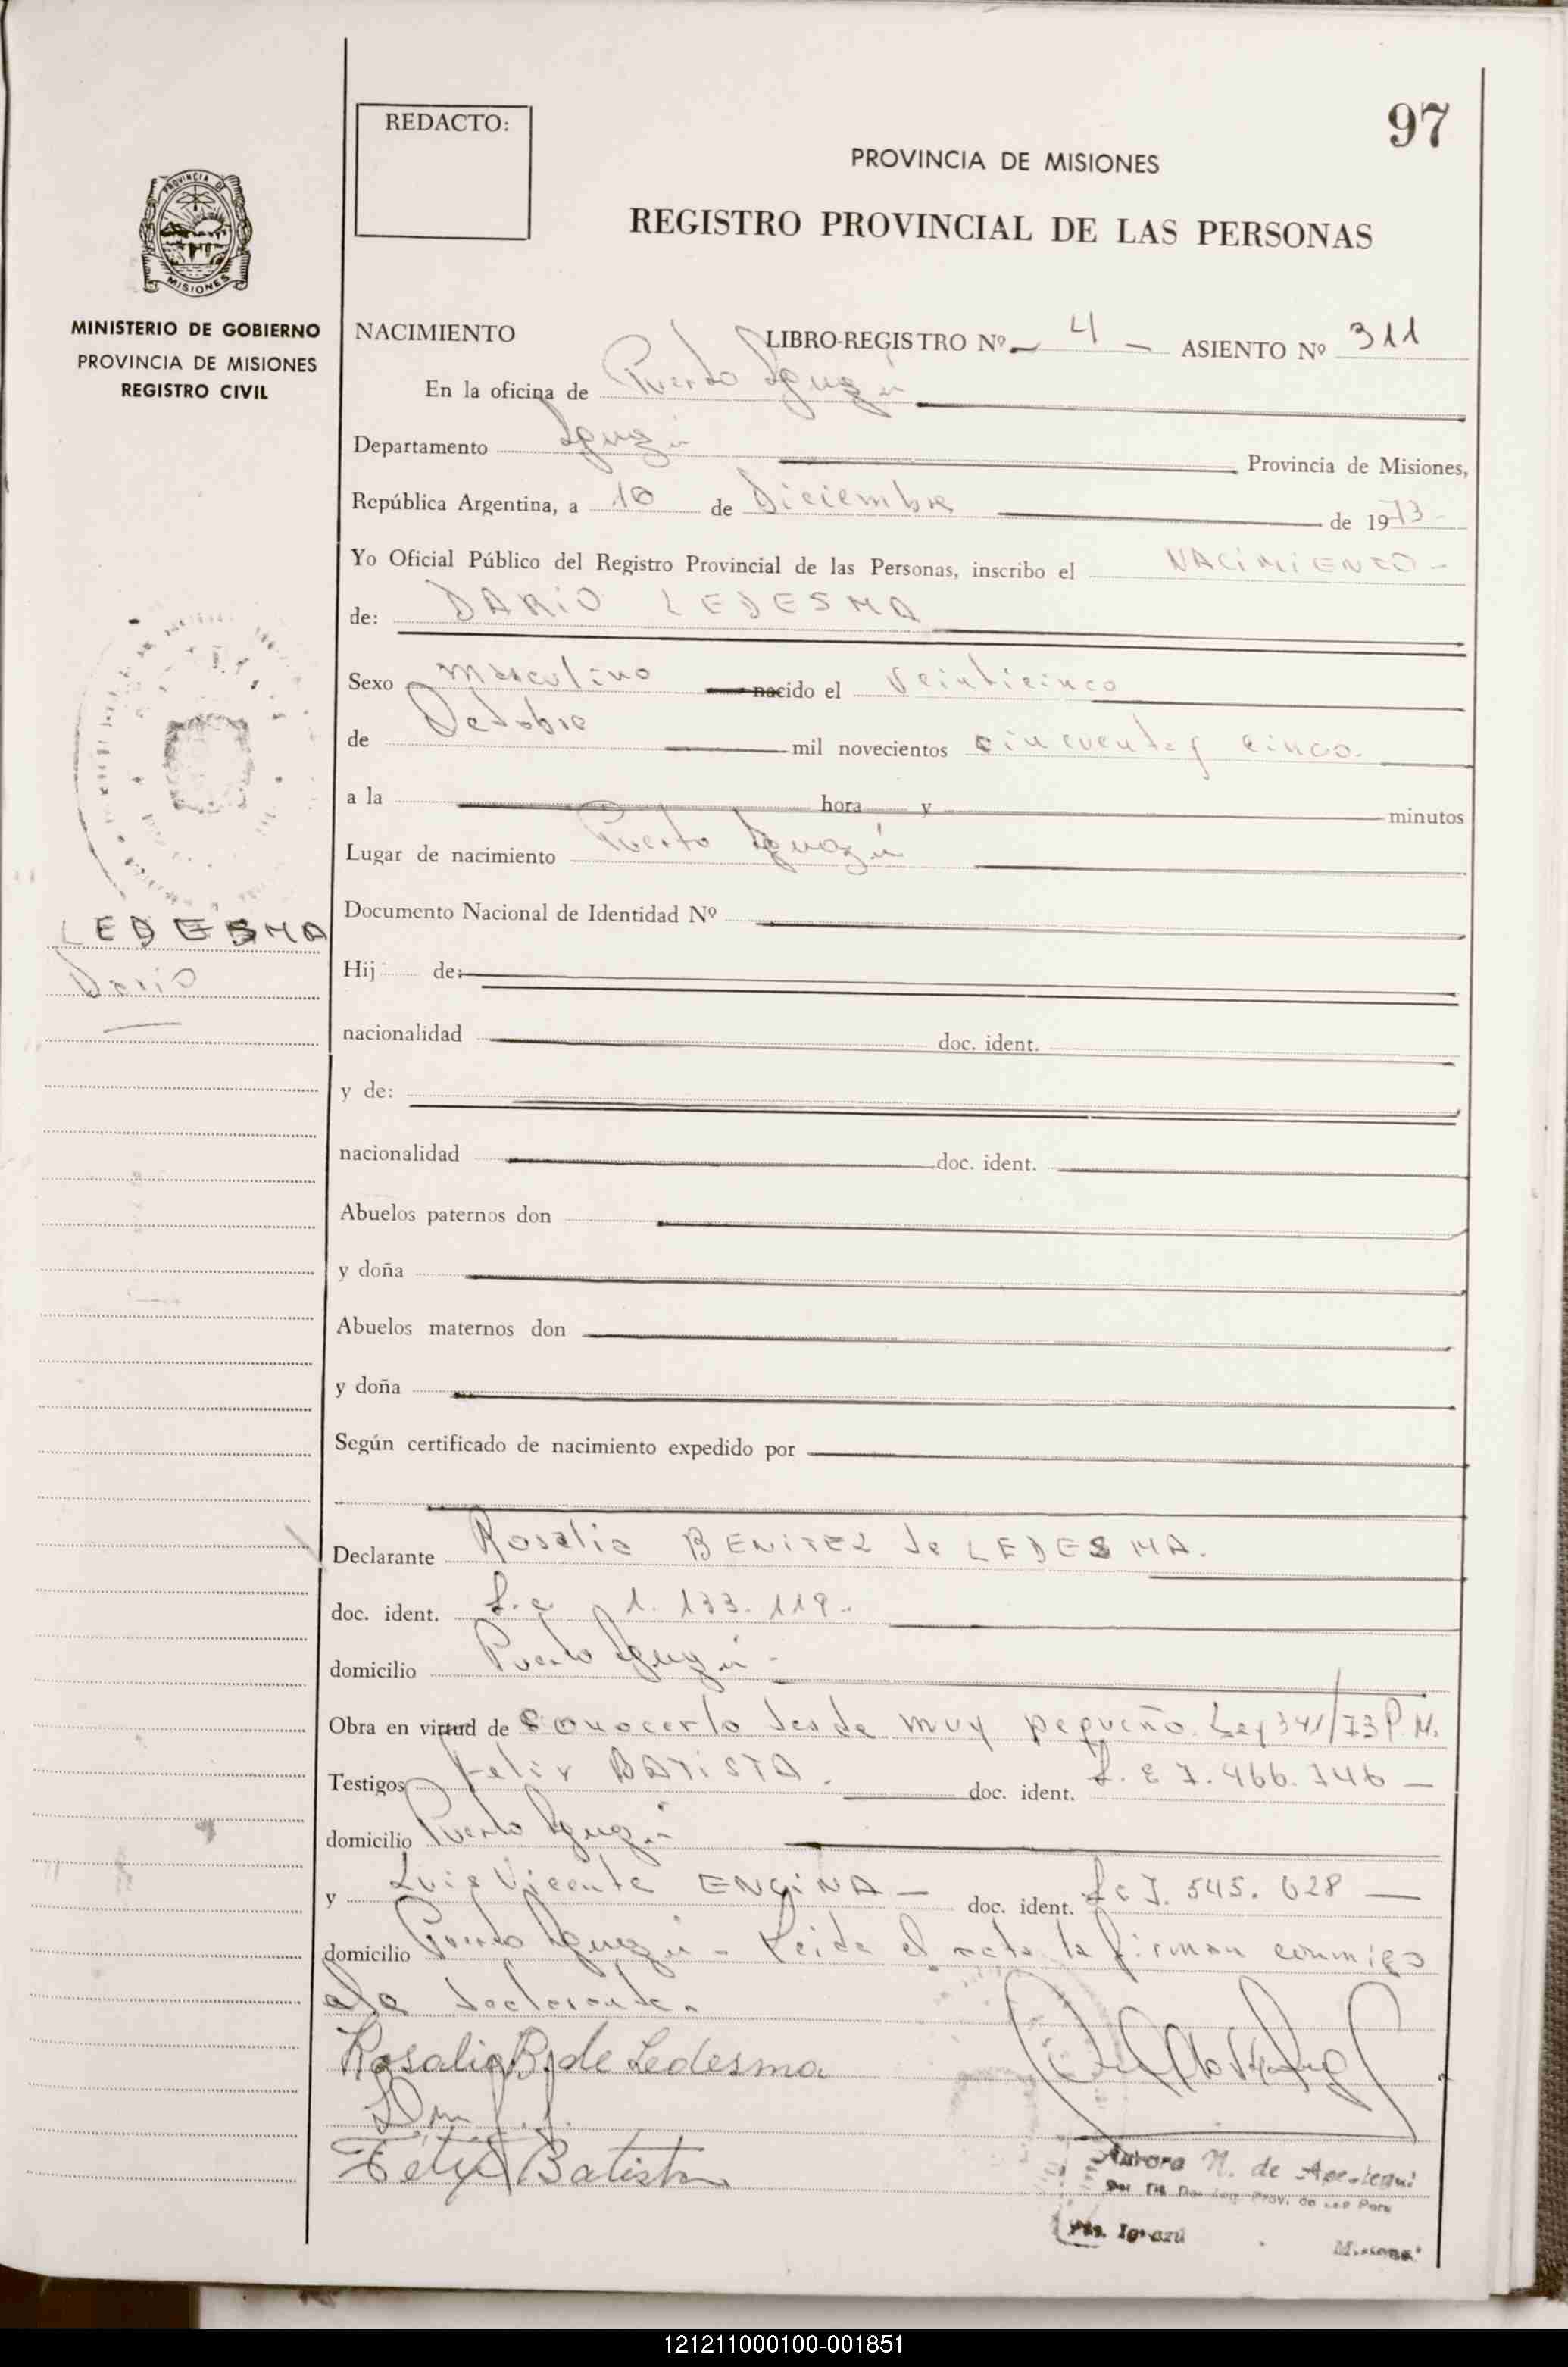 97
REDACTO:
PROVINCIA DE MISIONES
REGISTRO PROVINCIAL DE LAS PERSONAS
PROVINCIA DE
MISIONES
MINISTERIO DE GOBIERNO
PROVINCIA DE MISIONES
REGISTRO CIVIL
NACIMIENTO LIBRO-REGISTRO Nº 4 ASIENTO Nº 311
En la oficina de Puerto Iguazú
Departamento Iguazú Provincia de Misiones,
República Argentina, a 10 de Diciembre de 1973
Yo Oficial Público del Registro Provincial de las Personas, inscribo el NACIMIENTO -
de: DARIO LEDESMA
Sexo masculino nacido el veinticinco
de Octubre mil novecientos cincuenta y cinco.
a la hora y minutos
Lugar de nacimiento Puerto Iguazú
Documento Nacional de Identidad Nº
LEDESMA
Dario
Hij de:
nacionalidad doc. ident.
y de:
nacionalidad doc. ident.
Abuelos paternos don
y doña
Abuelos maternos don
y doña
Según certificado de nacimiento expedido por
Declarante Rosalia BENITEZ de LEDESMA.
doc. ident. L.c 1.133.119.
domicilio Puerto Iguazú -
Obra en virtud de conocerlo desde muy pequeño. Ley 341/73 P.M.
Testigos Felix BATISTA. doc. ident. L.E 7.466.746 -
domicilio Puerto Iguazú
y Luis Vicente ENCINA - doc. ident. 7.545.628 -
domicilio Puerto Iguazú - Leida el acta la firman conmigo
la declarante.
Rosalia B. de Ledesma
Felix Batista
Aurora N. de
Prov. de
Pto. Iguazú Misiones
121211000100-001851